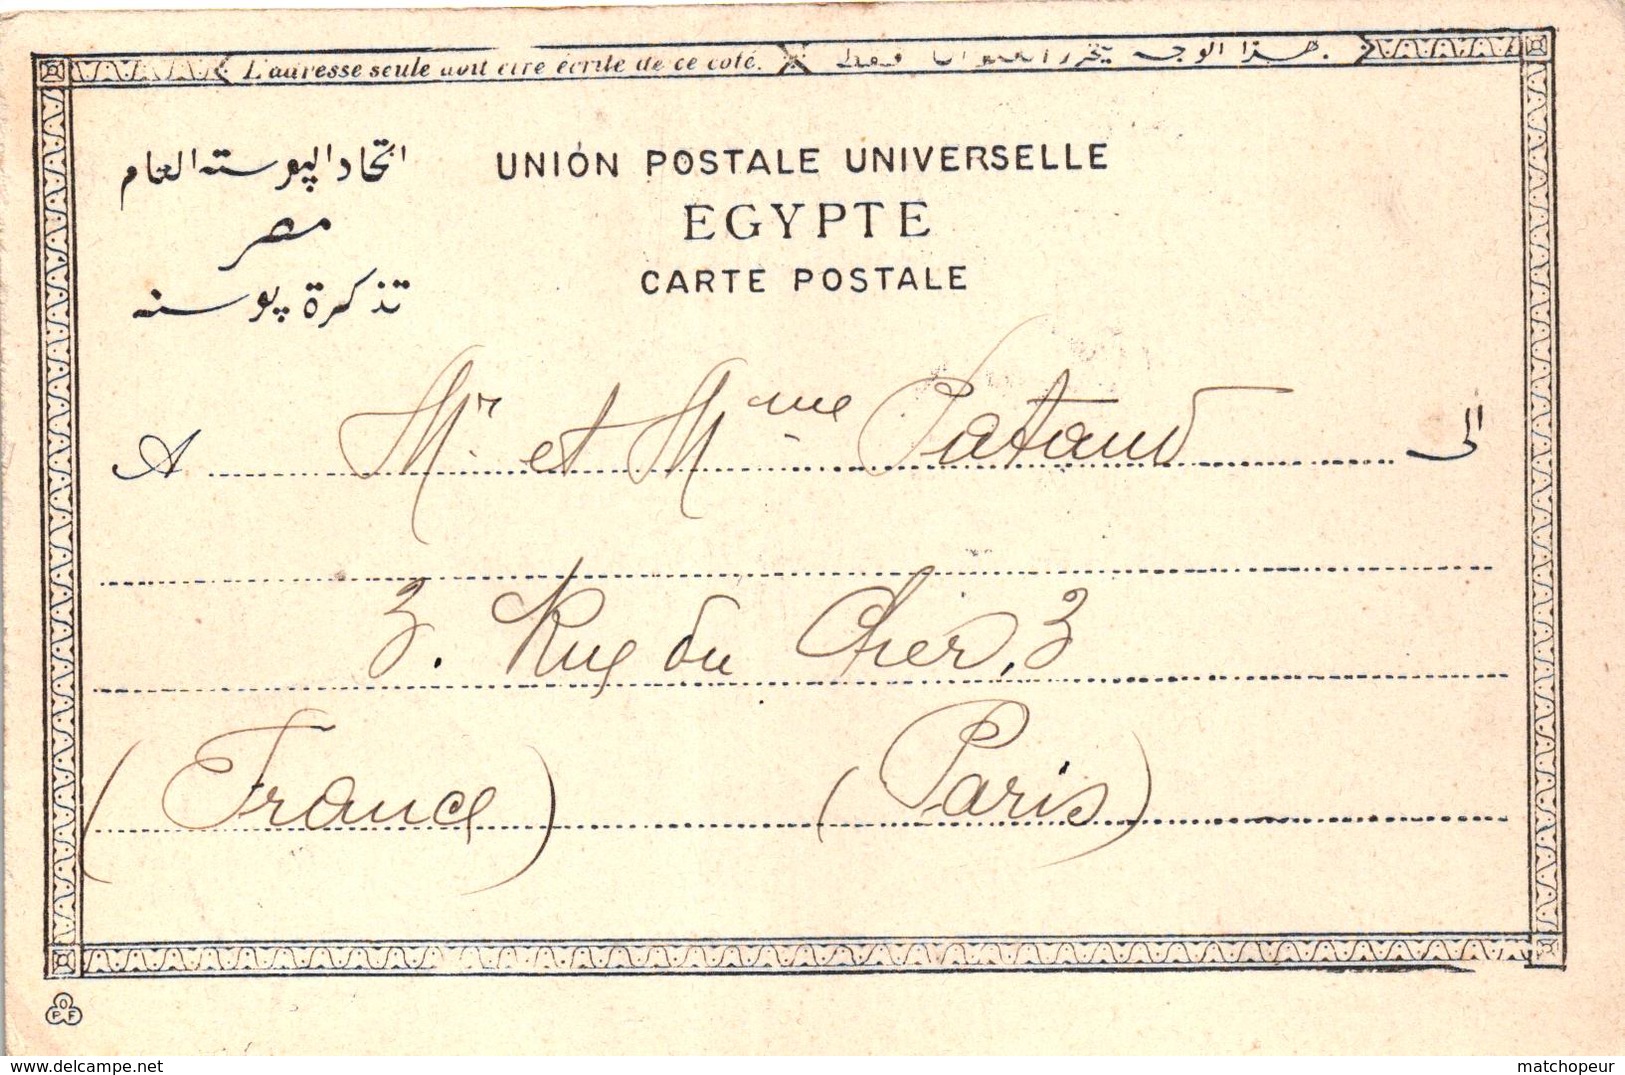 L'adresse seule doit être écrite de ce coté.
هذا الوجه يحرر العنوان فقط
اتحاد البوسته العام
UNION POSTALE UNIVERSELLE
مصر
EGYPTE
تذكرة بوسته
CARTE POSTALE
A Mr. et Mme Pataud الى
3. Rue du Cher, 3
(France) (Paris)
OPF
www.delcampe.net
matchopeur